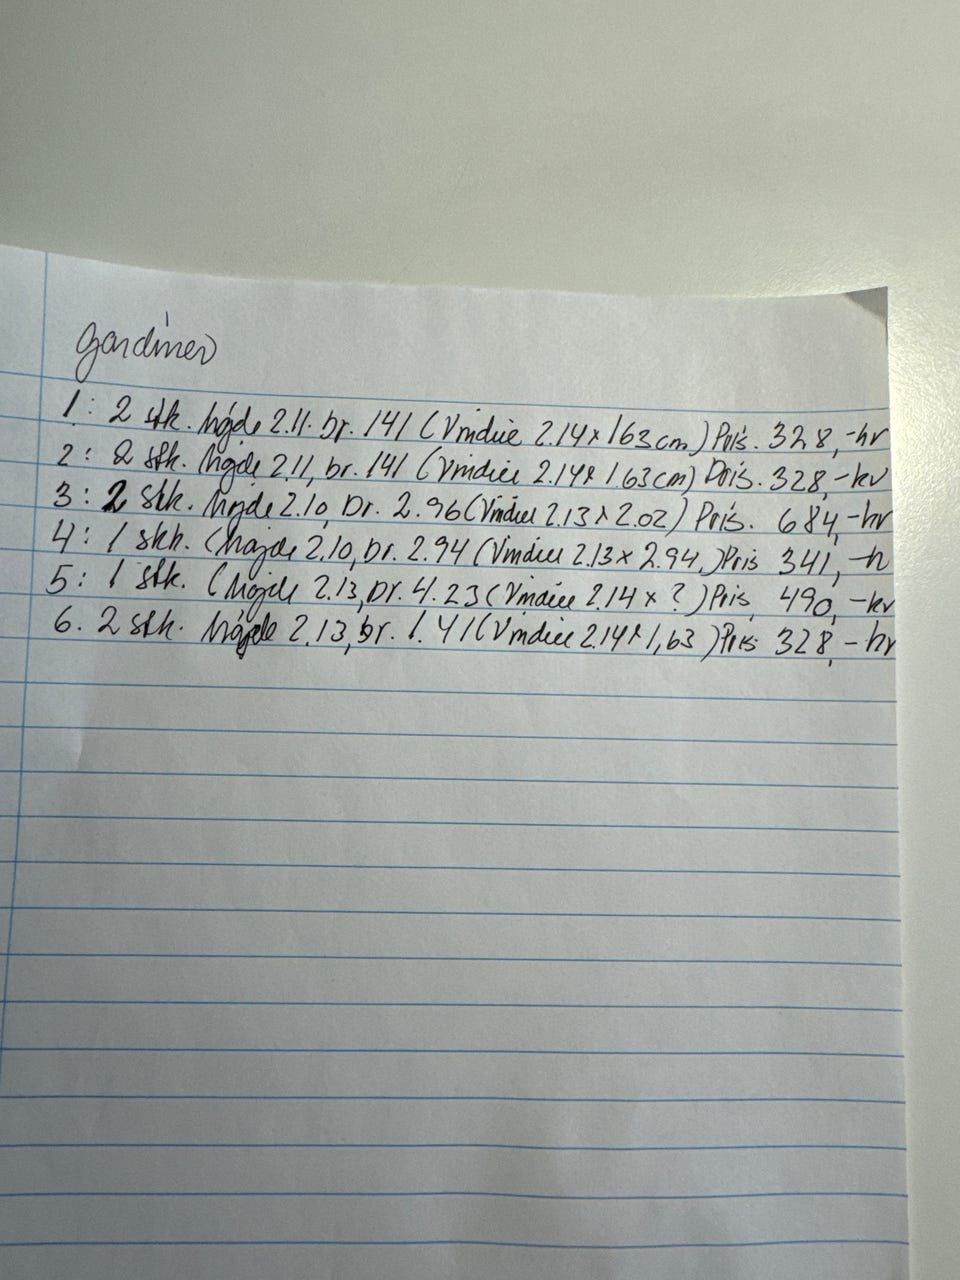 gardiner
1: 2 stk. højde 2.11. br. 141 (Vindue 2.14 x 163 cm) Pris. 328,-kr
2: 2 stk. højde 2.11, br. 141 (Vindue 2.14 x 1.63 cm) Pris. 328,-kr
3: 2 stk. højde 2.10, br. 2.96 (Vindue 2.13 x 2.02) Pris. 684,-kr
4: 1 stk. (højde 2.10, br. 2.94 (Vindue 2.13 x 2.94.) Pris 341,-k
5: 1 stk. (højde 2.13, br. 4.23 (Vindue 2.14 x ?) Pris, 490,-kr
6. 2 stk. højde 2.13, br. 1.41 (Vindue 2.14 x 1,63) Pris 328,-kr